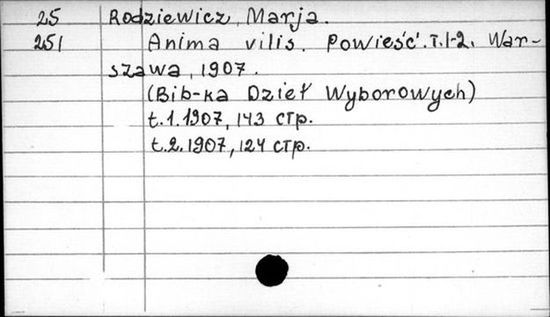 25 Rodziewicz, Marja.
251 Anima vilis. Powieść. T.1-2. War-
szawa, 1907.
(Bib-ka Dzieł Wyborowych)
t.1.1907, 143 стр.
t.2.1907, 124 стр.